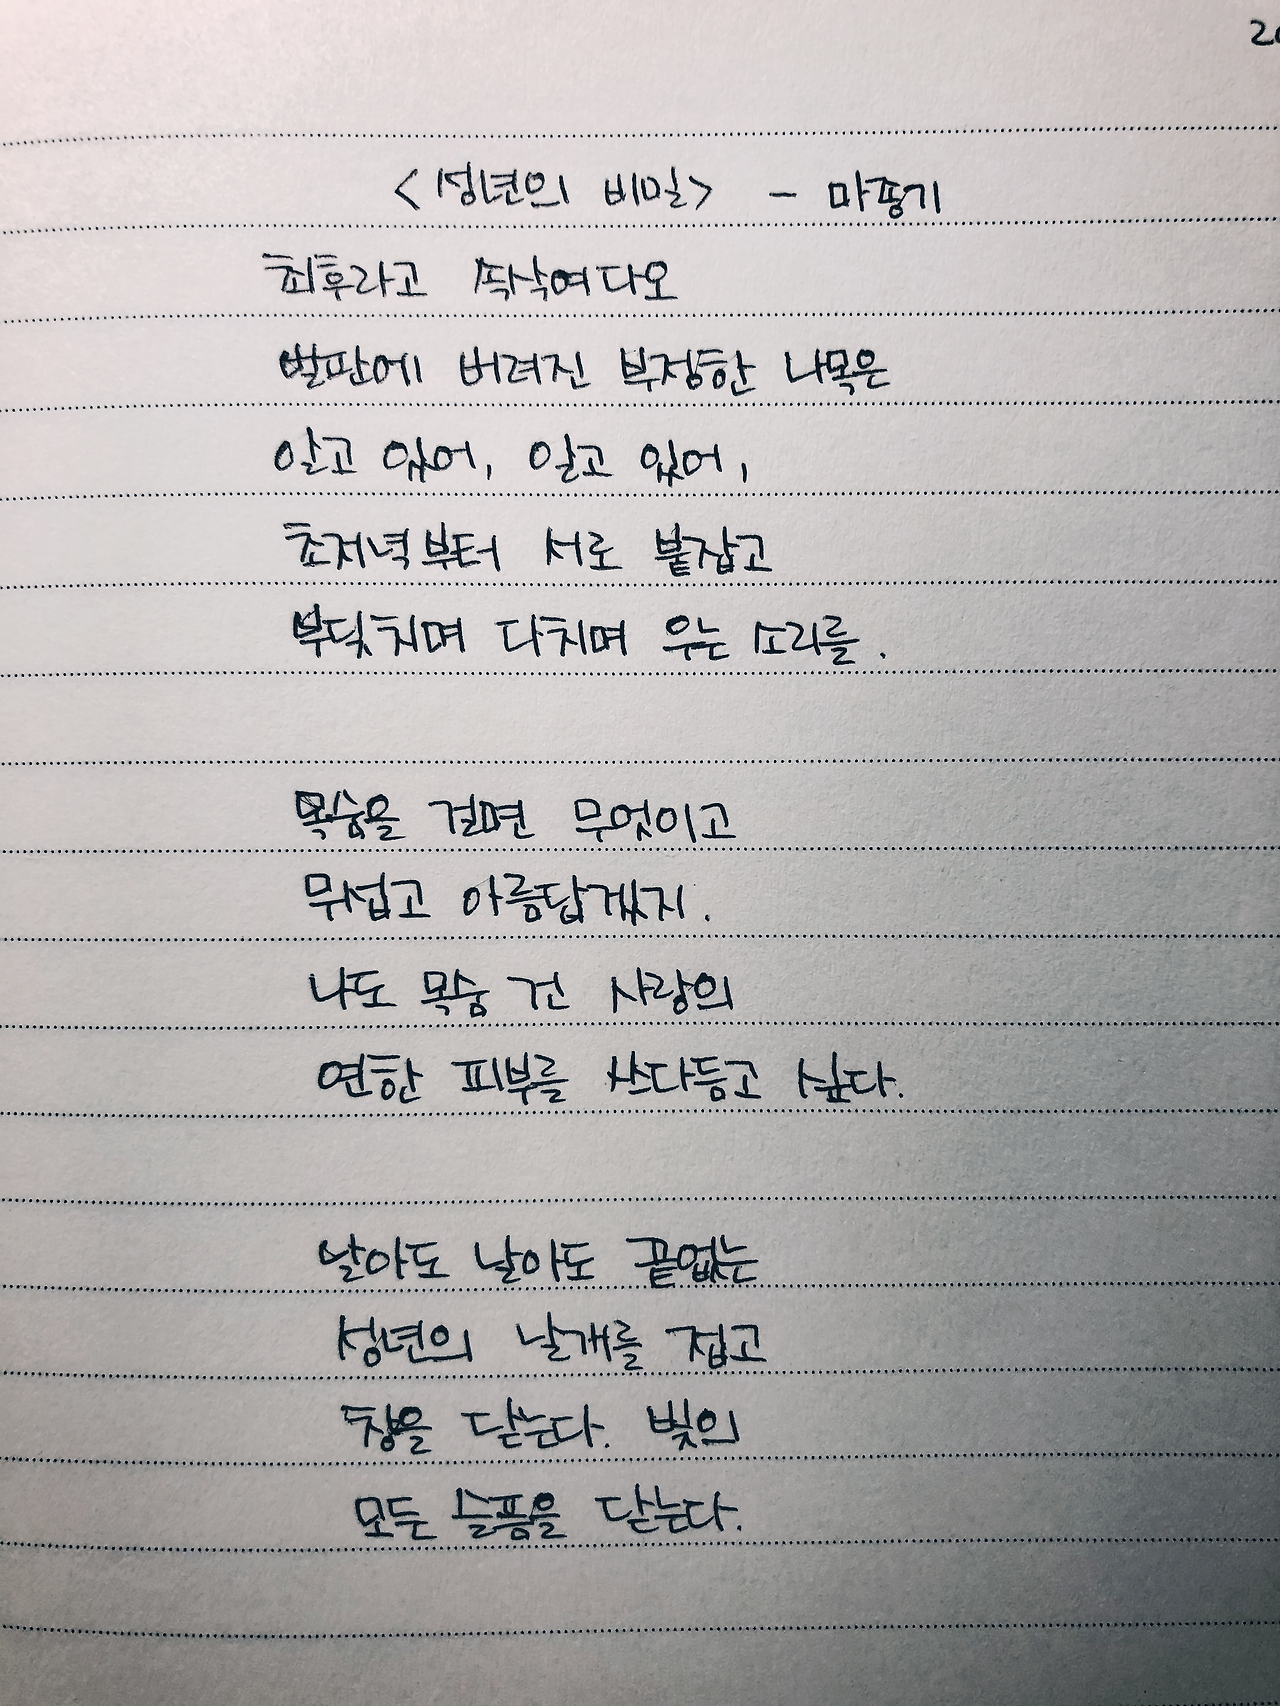 <성년의 비밀> - 마종기
최후라고 속삭여다오
벌판에 버려진 부정한 나목은
알고 있어, 알고 있어,
초저녁부터 서로 붙잡고
부딪치며 다치며 우는 소리를.
목숨을 걸면 무엇이고
무섭고 아름답겠지.
나도 목숨 건 사랑의
연한 피부를 쓰다듬고 싶다.
날아도 날아도 끝없는
성년의 날개를 접고
창을 닫는다. 빛의
모든 슬픔을 닫는다.